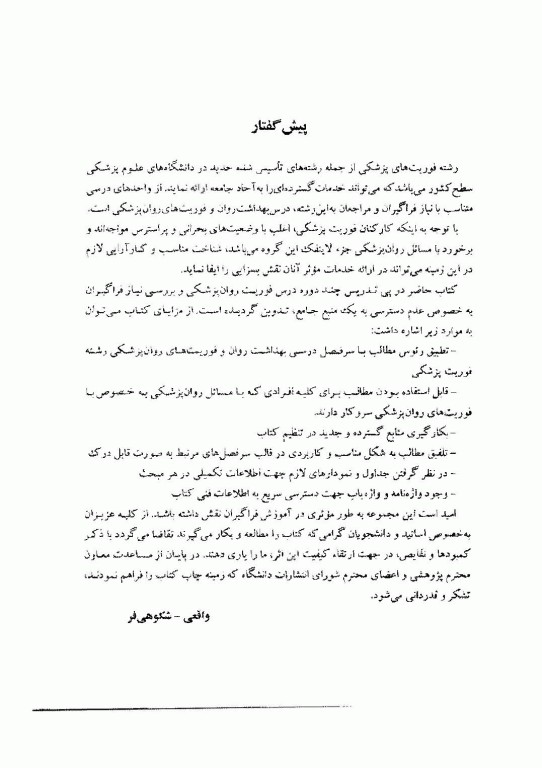 پیش گفتار
رشته فوریت‌های پزشکی از جمله رشته‌های تأسیس شده جدید در دانشگاه‌های علوم پزشکی
سطح کشور می‌باشد که می‌تواند خدمات گسترده‌ای را به آحاد جامعه ارائه نماید. از واحدهای درسی
متناسب با نیاز فراگیران و مراجعان به این رشته، درس بهداشت روان و فوریت‌های روان‌پزشکی است.
با توجه به اینکه کارکنان فوریت پزشکی، اغلب با وضعیت‌های بحرانی و پراسترس مواجه‌اند و
برخورد با مسائل روان‌پزشکی جزء لاینفک این گروه می‌باشد، شناخت مناسب و کارآرایی لازم
در این زمینه می‌تواند در ارائه خدمات مؤثر آنان نقش بسزایی را ایفا نماید.
کتاب حاضر در پی تدریس چند دوره درس فوریت روان‌پزشکی و بررسی نیاز فراگیران
به خصوص عدم دسترسی به یک منبع جامع، تدوین گردیده است. از مزایای کتاب می‌توان
به موارد زیر اشاره داشت:
– تطبیق رئوس مطالب با سرفصل درسی بهداشت روان و فوریت‌های روان‌پزشکی رشته
فوریت پزشکی
– قابل استفاده بودن مطالب برای کلیه افرادی که با مسائل روان‌پزشکی به خصوص با
فوریت‌های روان‌پزشکی سروکار دارند.
– بکارگیری منابع گسترده و جدید در تنظیم کتاب
– تلفیق مطالب به شکل مناسب و کاربردی در قالب سرفصل‌های مرتبط به صورت قابل درک
– در نظر گرفتن جداول و نمودارهای لازم جهت اطلاعات تکمیلی در هر مبحث
– وجود واژه‌نامه و واژه‌یاب جهت دسترسی سریع به اطلاعات فنی کتاب
امید است این مجموعه به طور مؤثری در آموزش فراگیران نقش داشته باشد. از کلیه عزیزان
به‌خصوص اساتید و دانشجویان گرامی که کتاب را مطالعه و بکار می‌گیرند تقاضا می‌گردد با ذکر
کمبودها و نقایص، در جهت ارتقاء کیفیت این اثر، ما را یاری دهند. در پایان از مساعدت معاون
محترم پژوهشی و اعضای محترم شورای انتشارات دانشگاه که زمینه چاپ کتاب را فراهم نمودند،
تشکر و قدردانی می‌شود.
واقعی – شکوهی‌فر